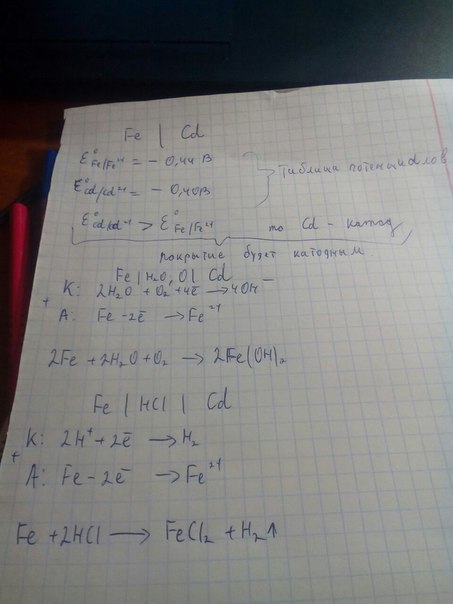 Fe | Cd
Ɛ⁰ Fe/Fe²⁺ = − 0,44 В
Ɛ⁰ Cd/Cd²⁺ = − 0,40В
таблица потенциалов
Ɛ⁰ Cd/Cd²⁺ > Ɛ⁰ Fe/Fe²⁺ то Cd – катод
покрытие будет катодным
Fe | H₂O, O₂ | Cd
+ К: 2H₂O + O₂ + 4ē → 4OH⁻
А: Fe − 2ē → Fe²⁺
2Fe + 2H₂O + O₂ → 2Fe(OH)₂
Fe | HCl | Cd
+ К: 2H⁺ + 2ē → H₂
А: Fe − 2ē → Fe²⁺
Fe + 2HCl → FeCl₂ + H₂↑